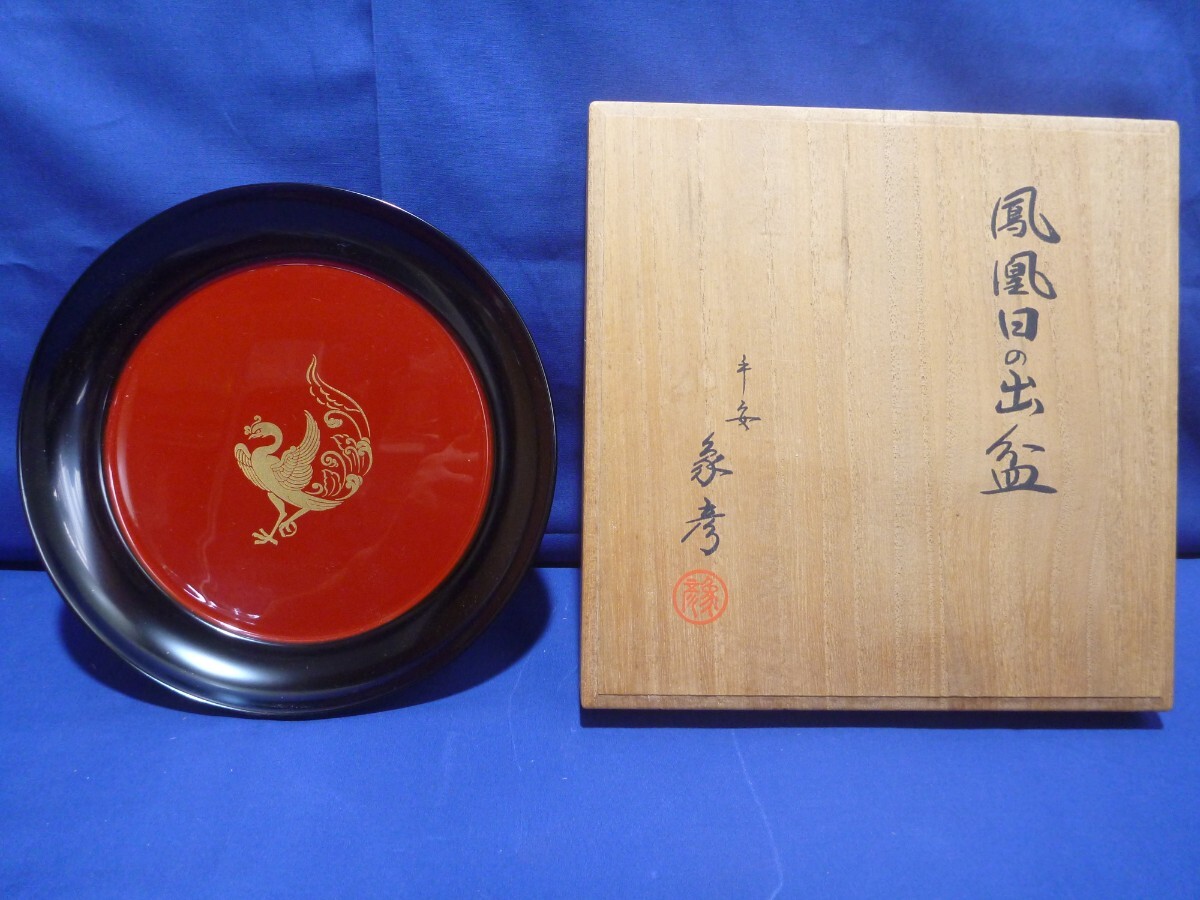 鳳凰日の出盆
平安
象彦